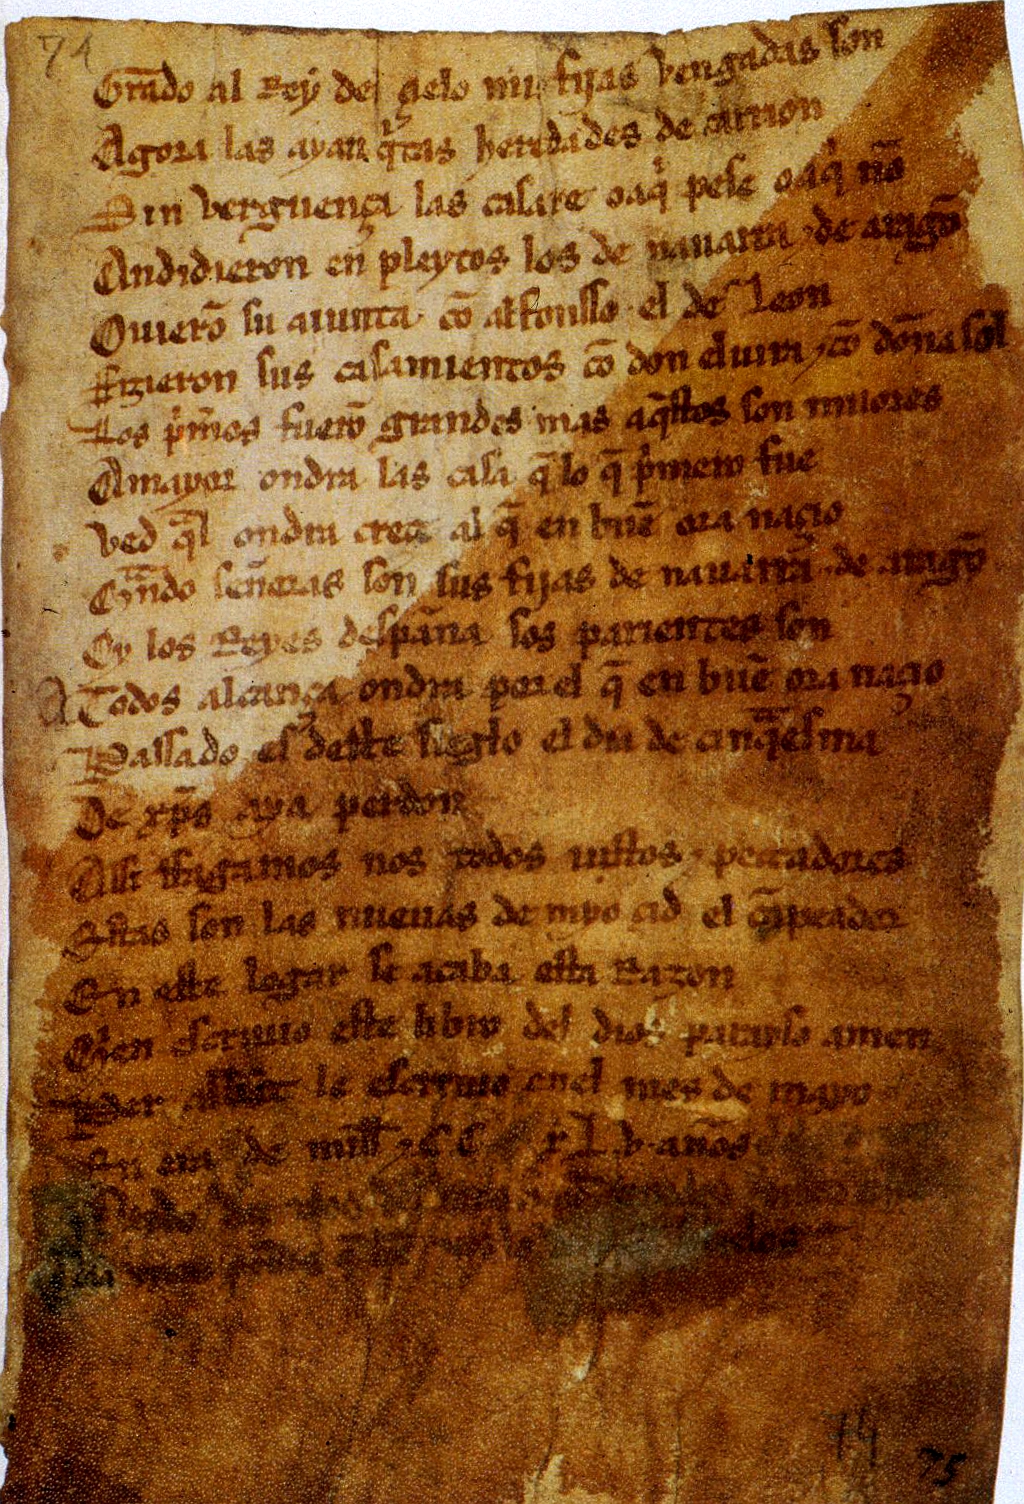 74
Grãdo al Rey del çielo mis fijas vengadas son
Agora las ayan q̃tas heredades de carrion
Sin verguença las casare o aq̃ pese o aq̃ nõ
Andidieron en pleytos los de nauarra ⁊ de aragõ
Ouierõ su aiunta cõ alfonsso el de Leon
fizieron sus casamientos cõ don eluira ⁊ cõ doña sol
Los p̃mos fuerõ grandes mas aq̃stos son miiores
A mayor ondra las casa q̃ lo q̃ p̃mero fue
Ved q̃l ondra creçe al q̃ en buẽ ora naçio
Q̃ndo señoras son sus fijas de nauarra ⁊ de aragõ
Oy los Reyes despaña sos parientes son
A Todos alcança ondra por el q̃ en buẽ ora naçio
Passado es deste sieglo el dia de cinq̃esma
De xp̃s aya perdon
Assi ffagamos nos todos iustos ⁊ peccadores
Estas son las nueuas de myo çid el cãpeador
En este logar se acaba esta Razon
Quien escriuio este libro del dios parayso amen
Per abbat le escriuio enel mes de mayo
En era de mill ⁊ CC XL.v. años
74
75